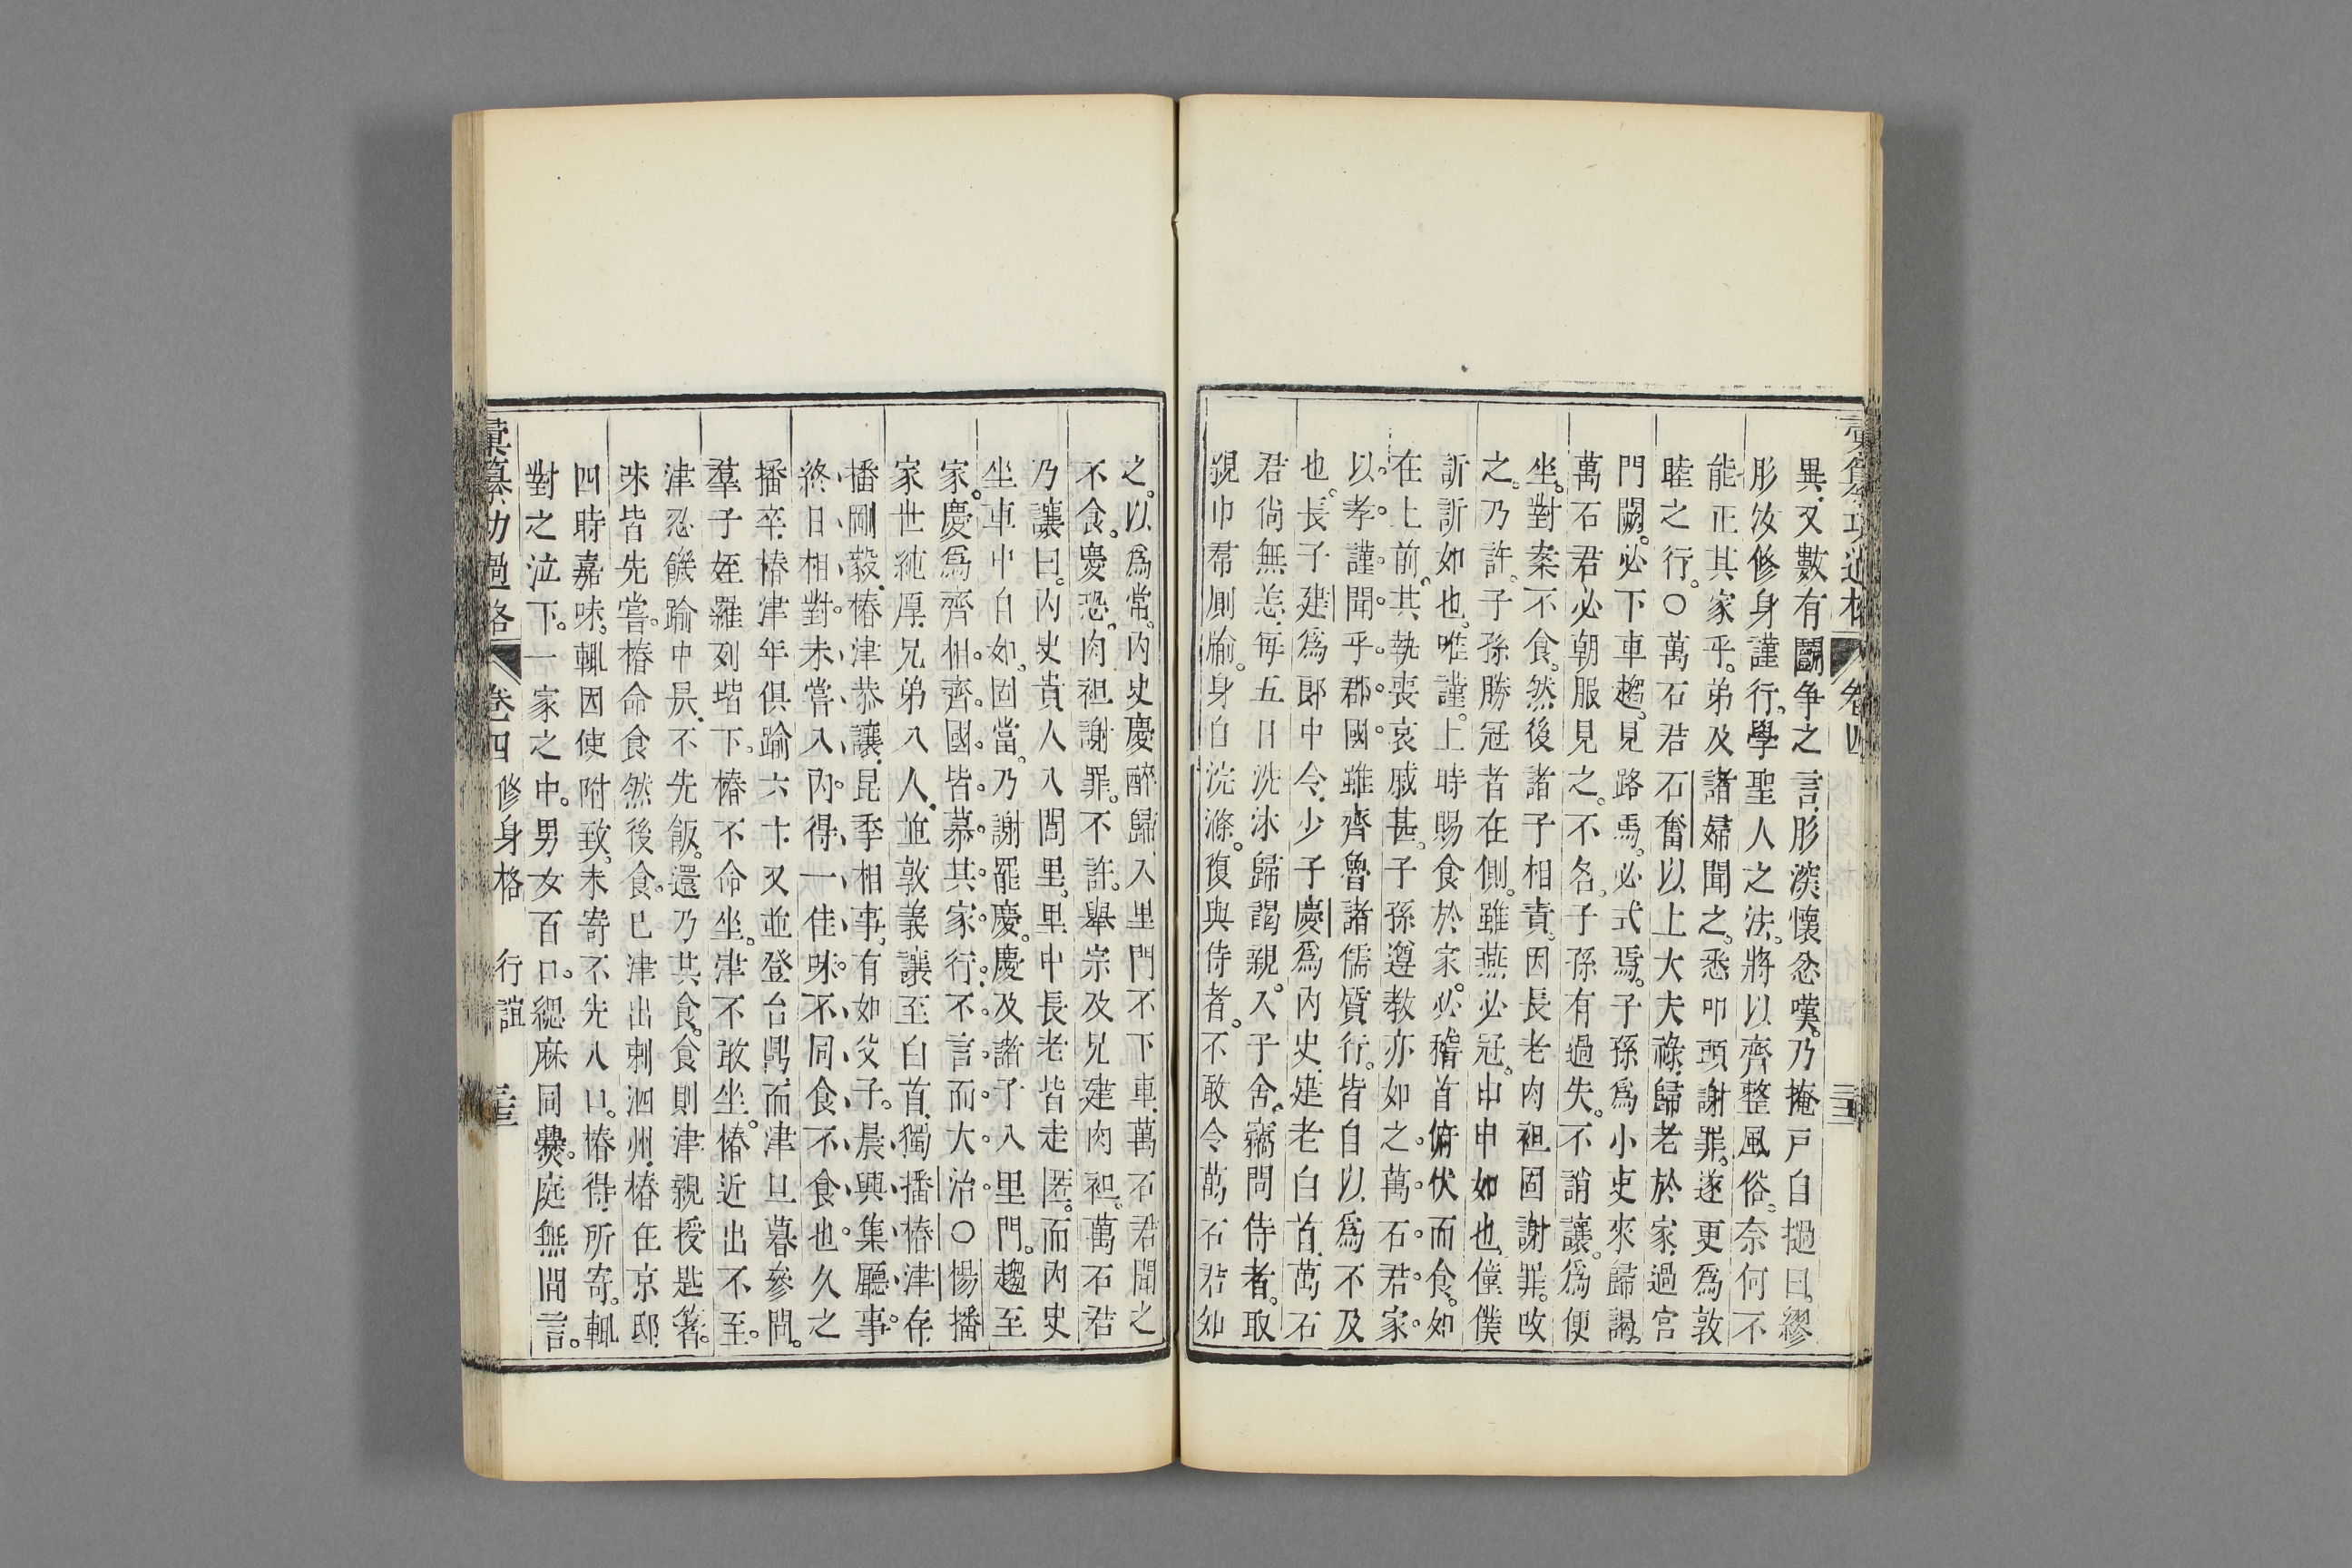 異。又數有鬬爭之言。肜深懷忿嘆。乃掩戸自撾曰。繆
肜汝修身謹行。學聖人之法。將以齊整風俗。奈何不
能正其家乎。弟及諸婦聞之。悉叩頭謝罪。遂更爲敦
睦之行。○萬石君石奮以上大夫祿。歸老於家。過宮
門闕。必下車趨。見路馬。必式焉。子孫爲小吏來歸謁。
萬石君必朝服見之。不名。子孫有過失。不誚讓。爲便
坐。對案不食。然後諸子相責。因長老肉袒固謝罪。改
之。乃許。子孫勝冠者在側。雖燕必冠。申申如也。僮僕
訢訢如也。唯謹。上時賜食於家。必稽首俯伏而食。如
在上前。其執喪哀戚甚。子孫遵教亦如之。萬石君家。
以孝謹聞乎郡國。雖齊魯諸儒質行。皆自以爲不及
也。長子建爲郎中令。少子慶爲内史。建老白首。萬石
君尙無恙。每五日洗沐歸謁親。入子舍。竊問侍者。取
親巾帬厠牏。身自浣滌。復與侍者。不敢令萬石君知
之。以爲常。内史慶醉歸。入里門不下車。萬石君聞之
不食。慶恐。肉袒謝罪。不許。舉宗及兄建肉袒。萬石君
乃讓曰。内史貴人。入閭里。里中長老皆走匿。而内史
坐車中自如。固當。乃謝罷慶。慶及諸子入里門。趨至
家。慶爲齊相。齊國皆慕其家行。不言而大治。○楊播
家世純厚。兄弟八人。竝敦義讓至白首。獨播椿津存。
播剛毅。椿津恭讓。昆季相事。有如父子。晨興集廳事。
終日相對。未嘗入内。得一佳味。不同食不食也。久之
播卒。椿津年俱踰六十。又竝登台鼎。而津旦暮參問。
羣子姪羅列堦下。椿不命坐。津不敢坐。椿近出不至。
津忍饑踰中昃。不先飯。還乃其食。食則津親授匙箸。
味皆先嘗。椿命食然後食。巳津出刺泗州。椿在京邸
四時嘉味。輒因使附致。未寄不先入口。椿得所寄。輒
對之泣下。一家之中。男女百口。緦麻同爨。庭無間言。
彙纂功過格 卷四 修身格 行誼